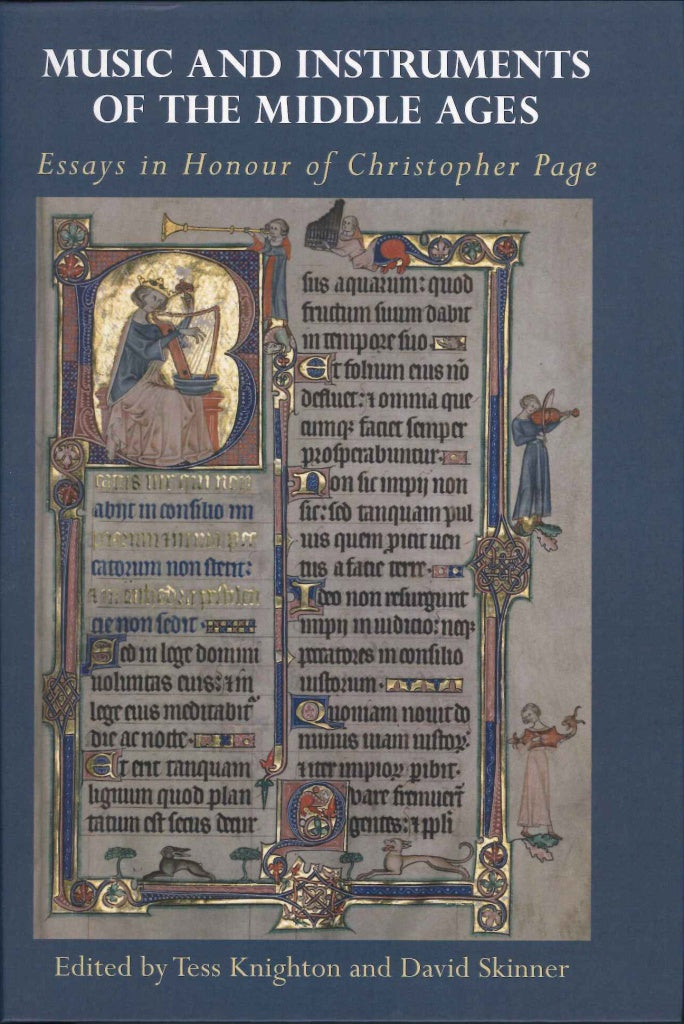 MUSIC AND INSTRUMENTS
OF THE MIDDLE AGES
Essays in Honour of Christopher Page
B
eatus uir qui non
abijt in consilio im
catorum non stetit:
cie non sedit.
Sed in lege domini
uoluntas eius: ⁊ in
lege eius meditabit̃
die ac nocte.
Et erit tanquam
lignum quod plan
tatum est secus decur
sus aquarum: quod
fructum suum dabit
in tempore suo.
Et folium eius nō
defluet: ⁊ omnia que
cumqꝫ faciet semper
prosperabuntur.
Non sic impij non
sic: sed tanquam pul
uis quem ꝓicit uen
tus a facie terre.
Ideo non resurgunt
impij in iudicio: neqꝫ
peccatores in consilio
iustorum.
Quoniam nouit do
minus uiam iustoꝝ:
⁊ iter impioꝝ ꝑibit.
Quare fremuer̄t
gentes: ⁊ ppl̄i
Edited by Tess Knighton and David Skinner